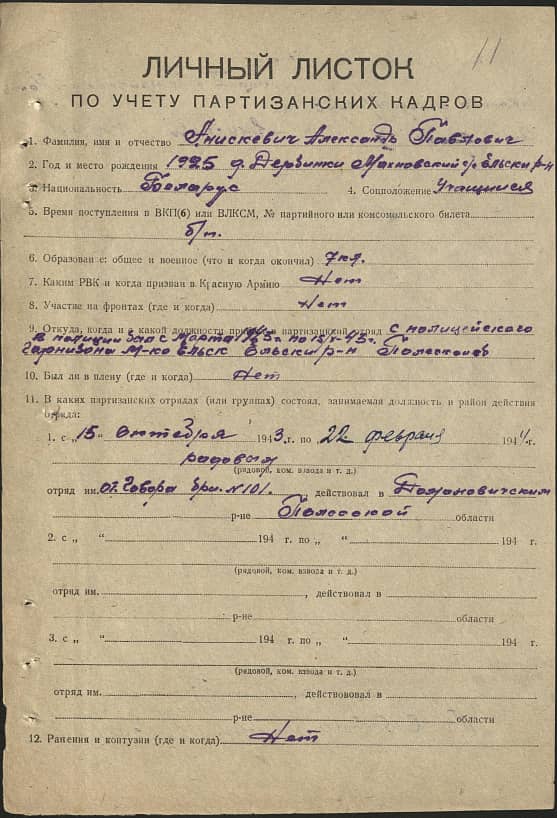 11
ЛИЧНЫЙ ЛИСТОК
ПО УЧЕТУ ПАРТИЗАНСКИХ КАДРОВ
1. Фамилия, имя и отчество Анискевич Александр Павлович
2. Год и место рождения 1925 д. Дербинки Махновский с/с Ельски р-н
3. Национальность Беларус 4. Соцположение Учащийся
5. Время поступления в ВКП(б) или ВЛКСМ, № партийного или комсомольского билета
б/п.
6. Образован е: общее и военное (что и когда окончил) 7 кл.
7. Каким РВК и когда призван в Красную Армию Нет
8. Участие на фронтах (где и когда) Нет
9. Откуда, когда и в какой должности в партизанский отряд с полицейского
В полиции был с Марта 1943 г. по 15/X-43 г.
Гарнизона М-ко Ельск Ельски р-н
10. Был ли в плену (где и когда) Нет
11. В каких партизанских отрядах (или группах) состоял, занимаемая должность и район действия
отряда:
1. с „15" Октебря 1943. г. по 22 февраля 1944. г.
радовым
(рядовой, ком. взвода и т. д.)
отряд им. От. Говора бри. № 101. , действовал в
р-не Полесской области
2. с „ “ 194 г. по „ “ 194 г.
(рядовой, ком. взвода и т. д.)
отряд им. , действовал в
р-не области
3. с „ “ 194 г. по „ “ 194 г.
(рядовой, ком. взвода и т. д.)
отряд им. , действововал в
р-не области
12. Ранения и контузии (где и когда) Нет